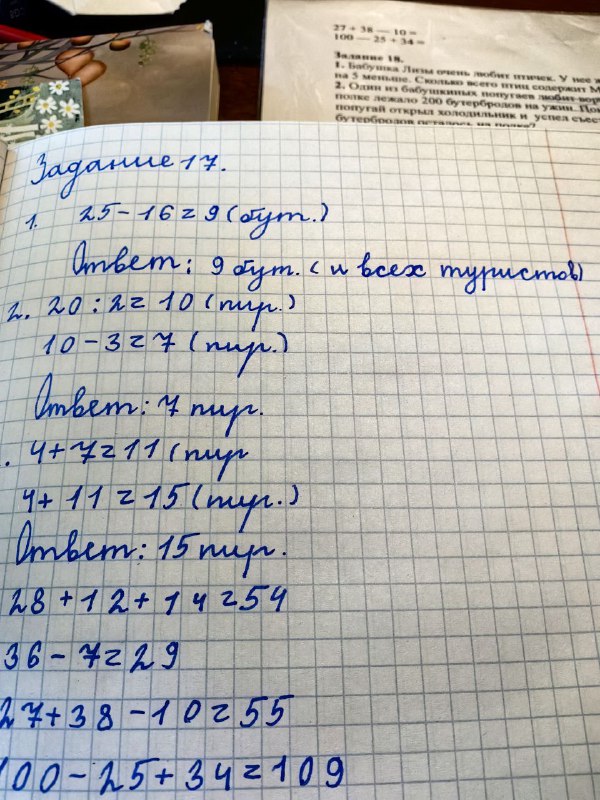 27 + 38 — 10 =
100 — 25 + 34 =
Задание 18.
1. Бабушка Лизы очень любит птичек. У нее ж
на 5 меньше. Сколько всего птиц содержит М
2. Один из бабушкиных попугаев любит вор
полке лежало 200 бутербродов на ужин. Пок
попугай открыл холодильник и успел съест
бутербродов осталось на полке?
Задание 17.
1. 25 - 16 = 9 (бут.)
Ответ: 9 бут. ( и всех туристов)
2. 20 : 2 = 10 (пир.)
10 - 3 = 7 (пир.)
Ответ: 7 пир.
. 4 + 7 = 11 (пир
4 + 11 = 15 (пир.)
Ответ: 15 пир.
28 + 12 + 14 = 54
36 - 7 = 29
27 + 38 - 10 = 55
100 - 25 + 34 = 109